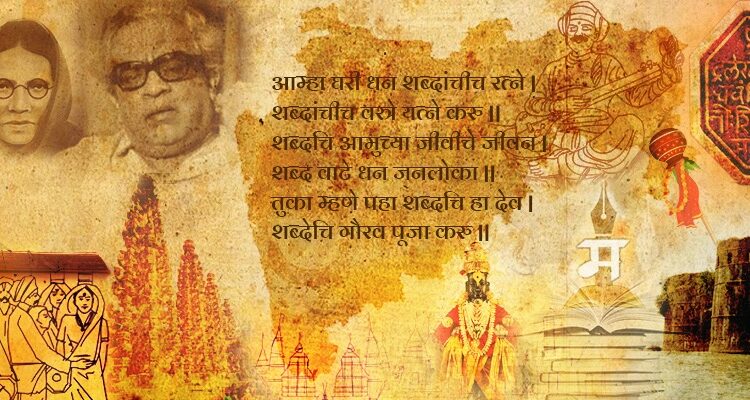 आम्हा घरी धन शब्दांचीच रत्ने |
शब्दांचीच वस्त्रे यत्ने करु ||
शब्दचि आमुच्या जीवीचे जीवन |
शब्द वाटे धन जनलोका ||
तुका म्हणे पहा शब्दचि हा देव |
शब्देचि गौरव पूजा करु ||
म